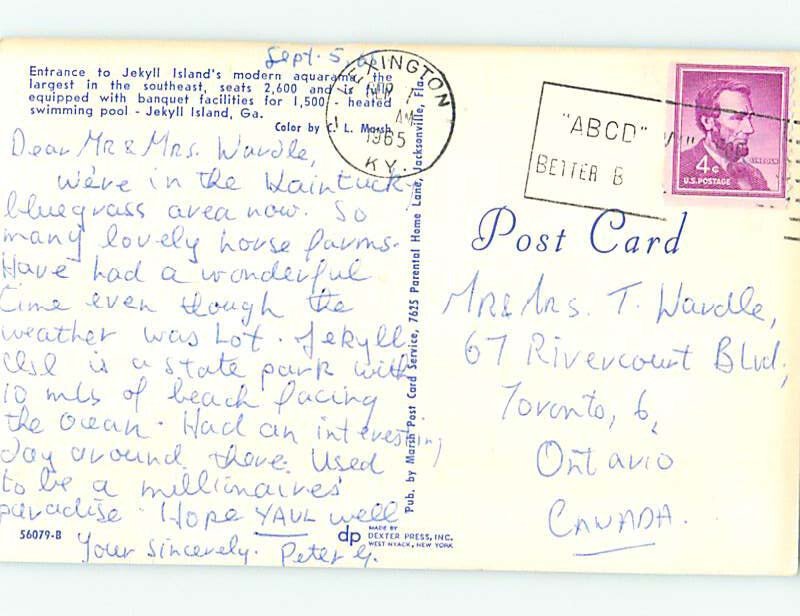 Sept. 5, 65
Entrance to Jekyll Island's modern aquarama, the
largest in the southeast, seats 2,600 and is full
equipped with banquet facilities for 1,500 - heated
swimming pool - Jekyll Island, Ga.
Color by C. L. Marsh
Dear Mr & Mrs. Wardle,
We're in the Kaintuck
bluegrass area now. So
many lovely horse farms.
Have had a wonderful
time even though the
weather was hot. Jekyll
Isl is a state park with
10 mls of beach facing
the ocean. Had an interesting
day around there. Used
to be a millionaires'
paradise. Hope YAUL well
Your sincerely. Peter G.
56079-B
Pub. by Marsh Post Card Service, 7625 Parental Home Lane, Jacksonville, Fla.
dp MADE BY
DEXTER PRESS, INC.
WEST NYACK, NEW YORK
LEXINGTON
SEP 7
AM
1965
KY.
"ABCD"
BETTER B
LINCOLN
4¢
U.S. POSTAGE
Post Card
Mr & Mrs. T. Wardle,
67 Rivercourt Blvd;
Toronto, 6,
Ontario
CANADA.